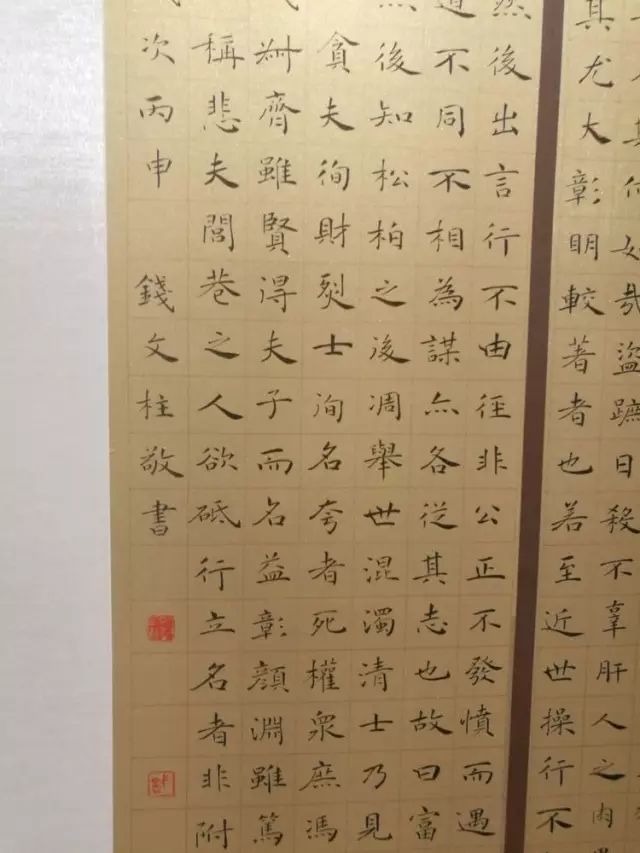 其何如哉盜蹠日殺不辜肝人之肉
其尤大彰明較著者也若至近世操行不
然後出言行不由徑非公正不發憤而遇
道不同不相為謀亦各從其志也故曰富
然後知松柏之後凋舉世混濁清士乃見
貪夫徇財烈士徇名夸者死權眾庶馮
叔齊雖賢得夫子而名益彰顏淵雖篤
稱悲夫閭巷之人欲砥行立名者非附
次丙申 錢文柱敬書